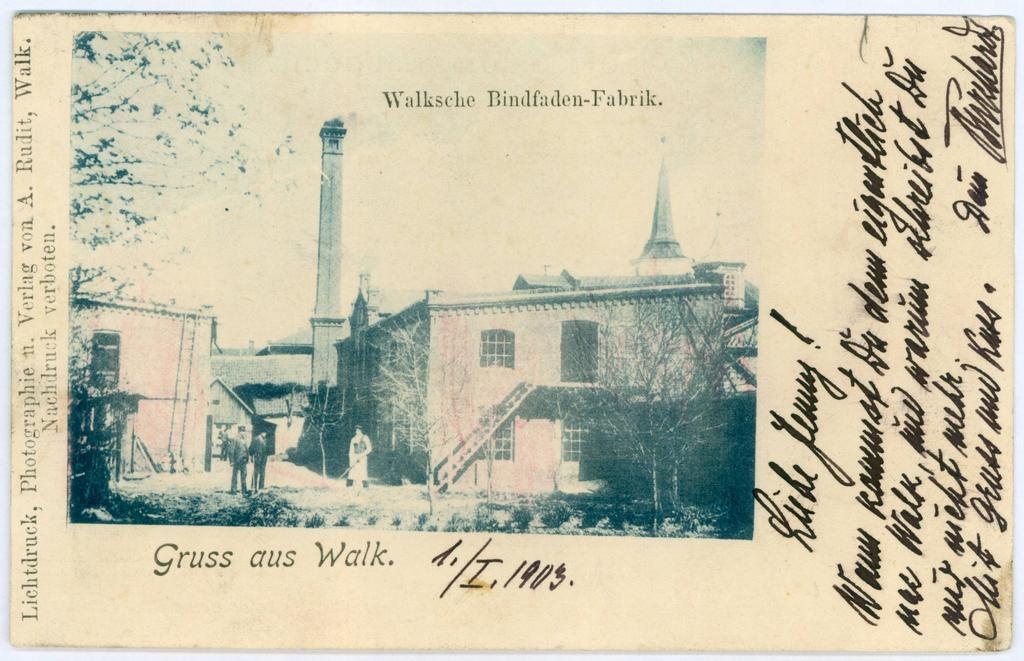 Lichtdruck, Photographie u. Verlag von A. Rudit, Walk.
Nachdruck verboten.
Walksche Bindfaden-Fabrik.
Gruss aus Walk.
1./I. 1903.
Liebe Jenny!
Wann kommst Du denn eigentlich
nac Walk, und warum schreibst Du
mir nicht mehr.
Mit Gruss und Kuss. Dein